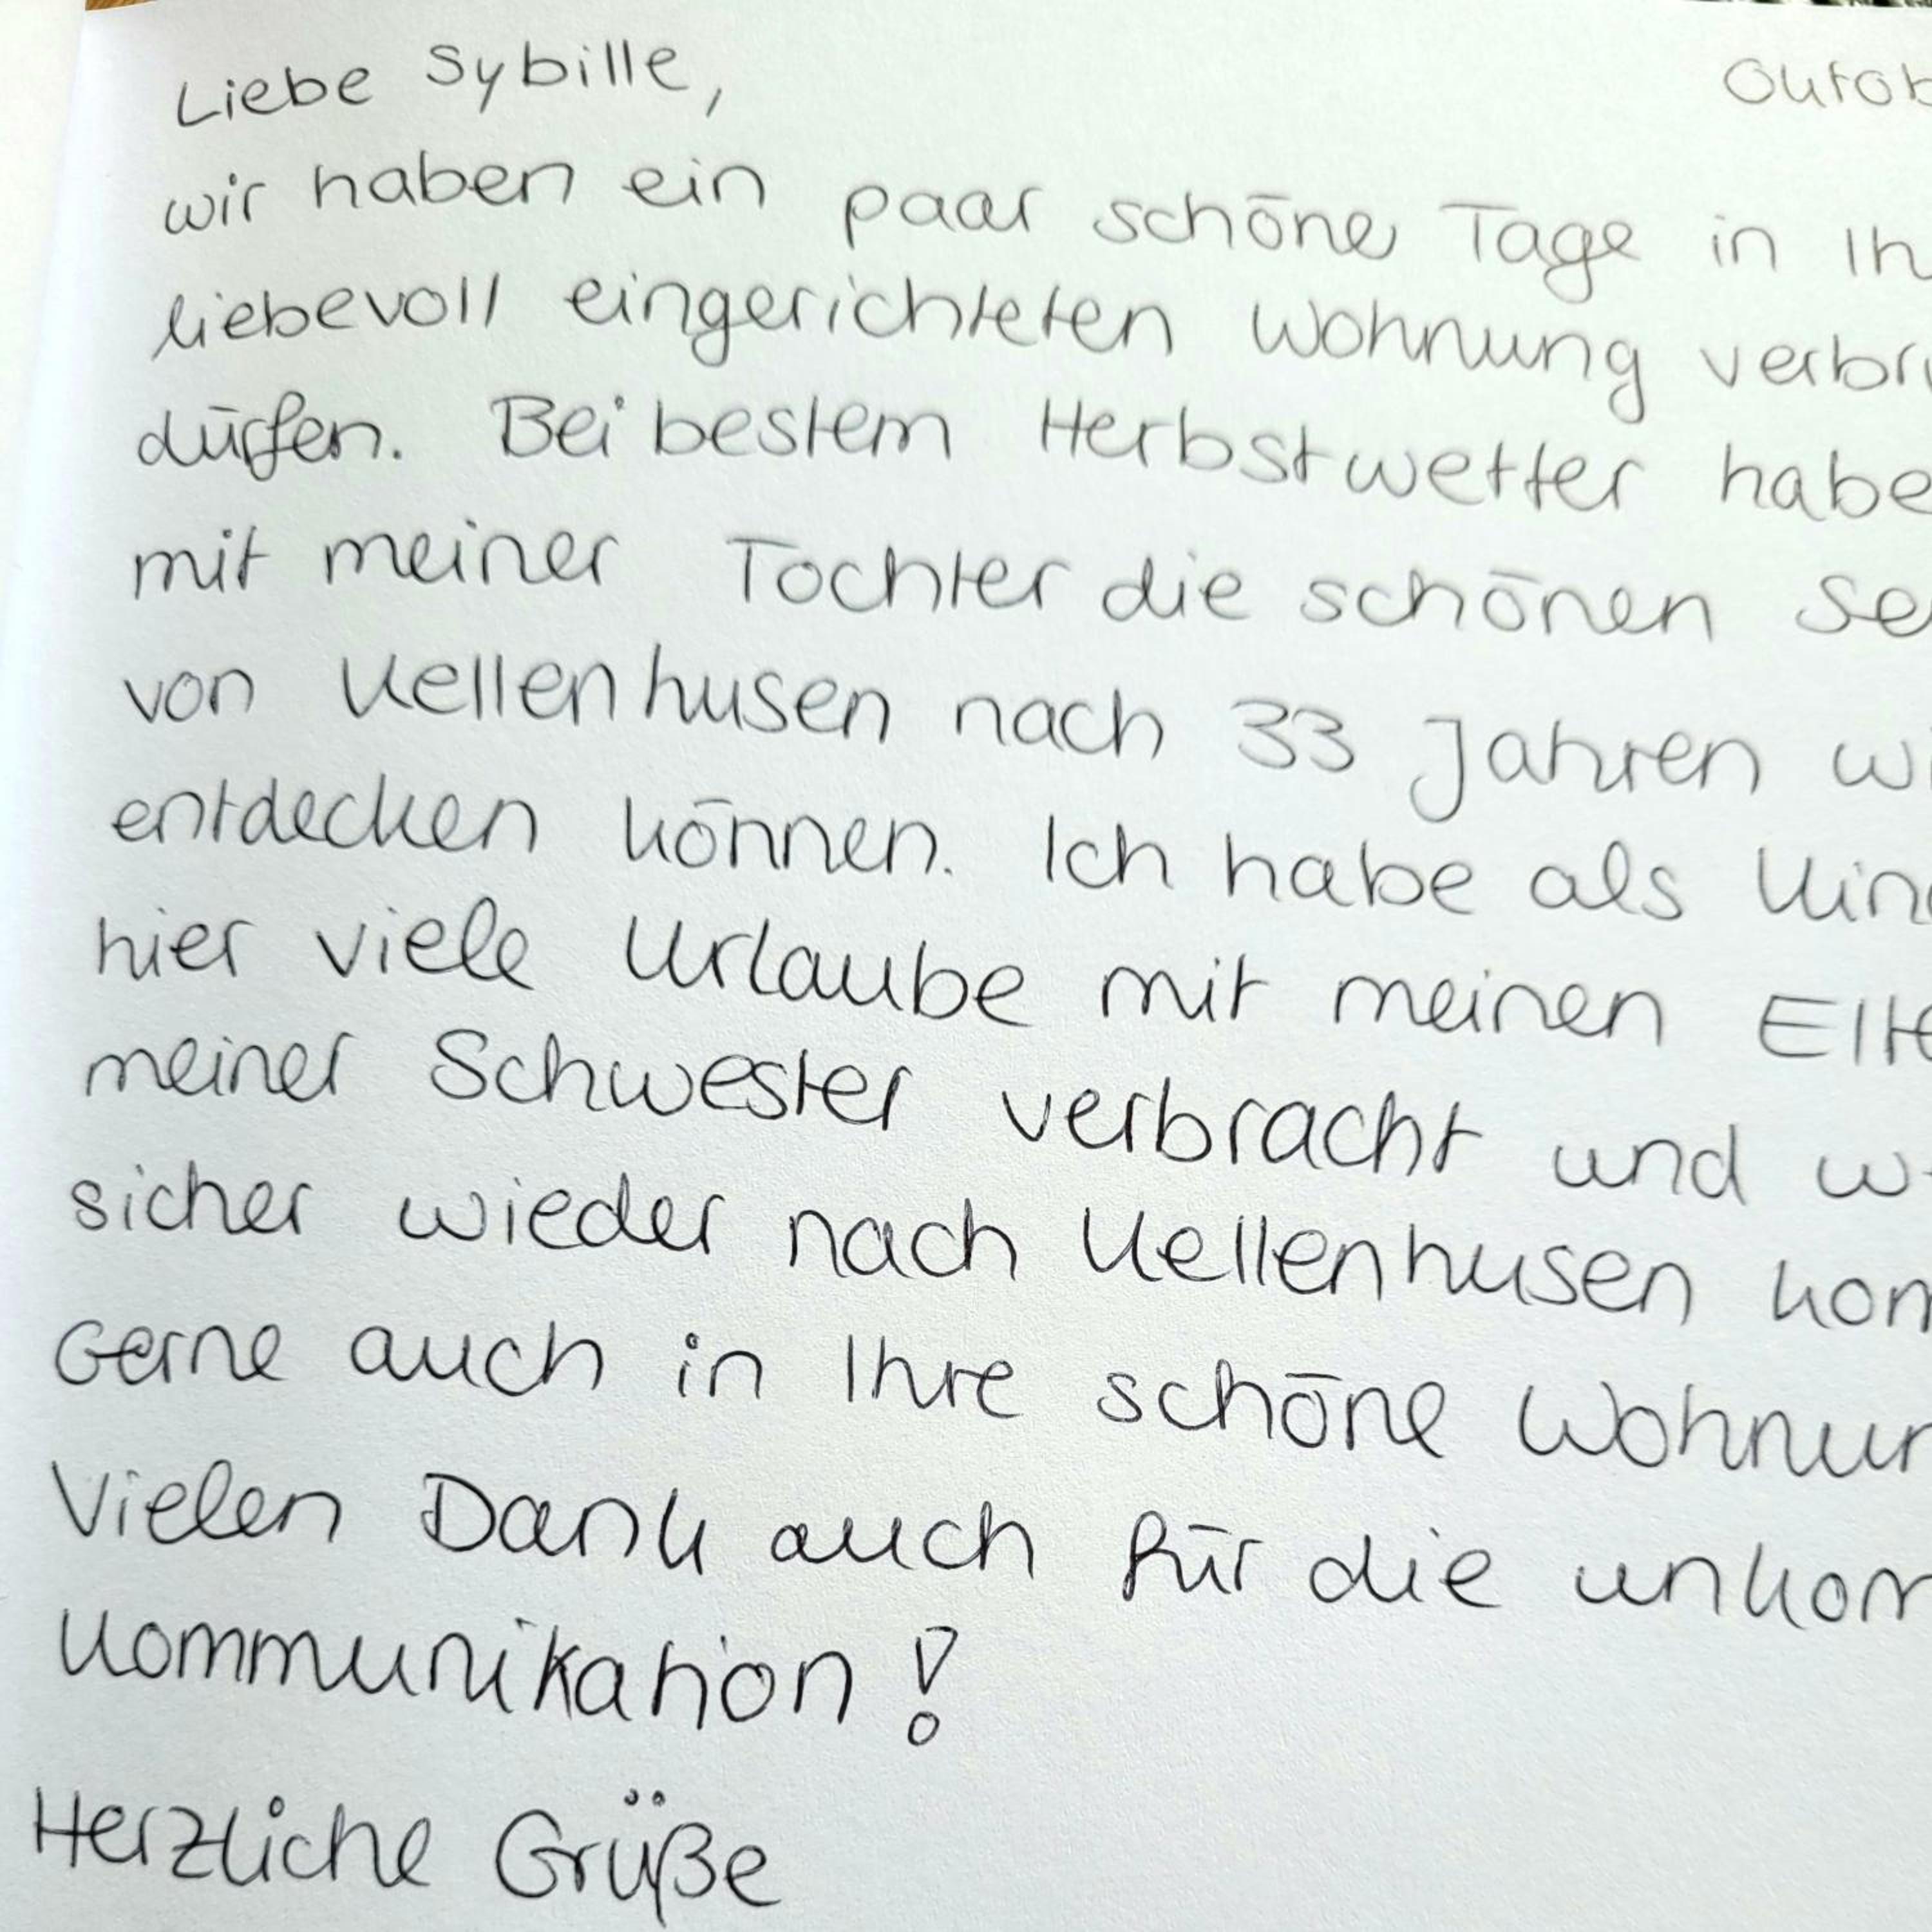 Liebe Sybille, Oktob
wir haben ein paar schöne Tage in Ih
liebevoll eingerichteten Wohnung verbr
dürfen. Bei bestem Herbstwetter habe
mit meiner Tochter die schönen Se
von Kellenhusen nach 33 Jahren wi
entdecken können. Ich habe als Kind
hier viele Urlaube mit meinen Elte
meiner Schwester verbracht und w
sicher wieder nach Kellenhusen kom
Gerne auch in Ihre schöne Wohnun
Vielen Dank auch für die unkom
Kommunikation!
Herzliche Grüße